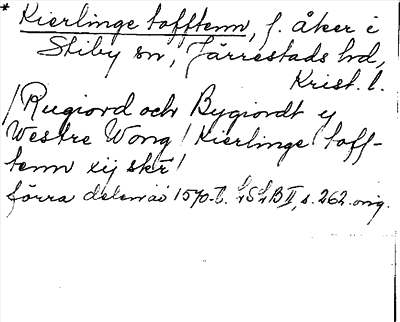 * Kierlinge tofftenn, f. åker i
Stiby sn, Järrestads hd,
Krist. l.
/Rugiord och Bygiordt y
Westre Wong / Kierlinge toff-
tenn xij skr /
förra delen av 1570-t. LSLB II, s. 262. orig.